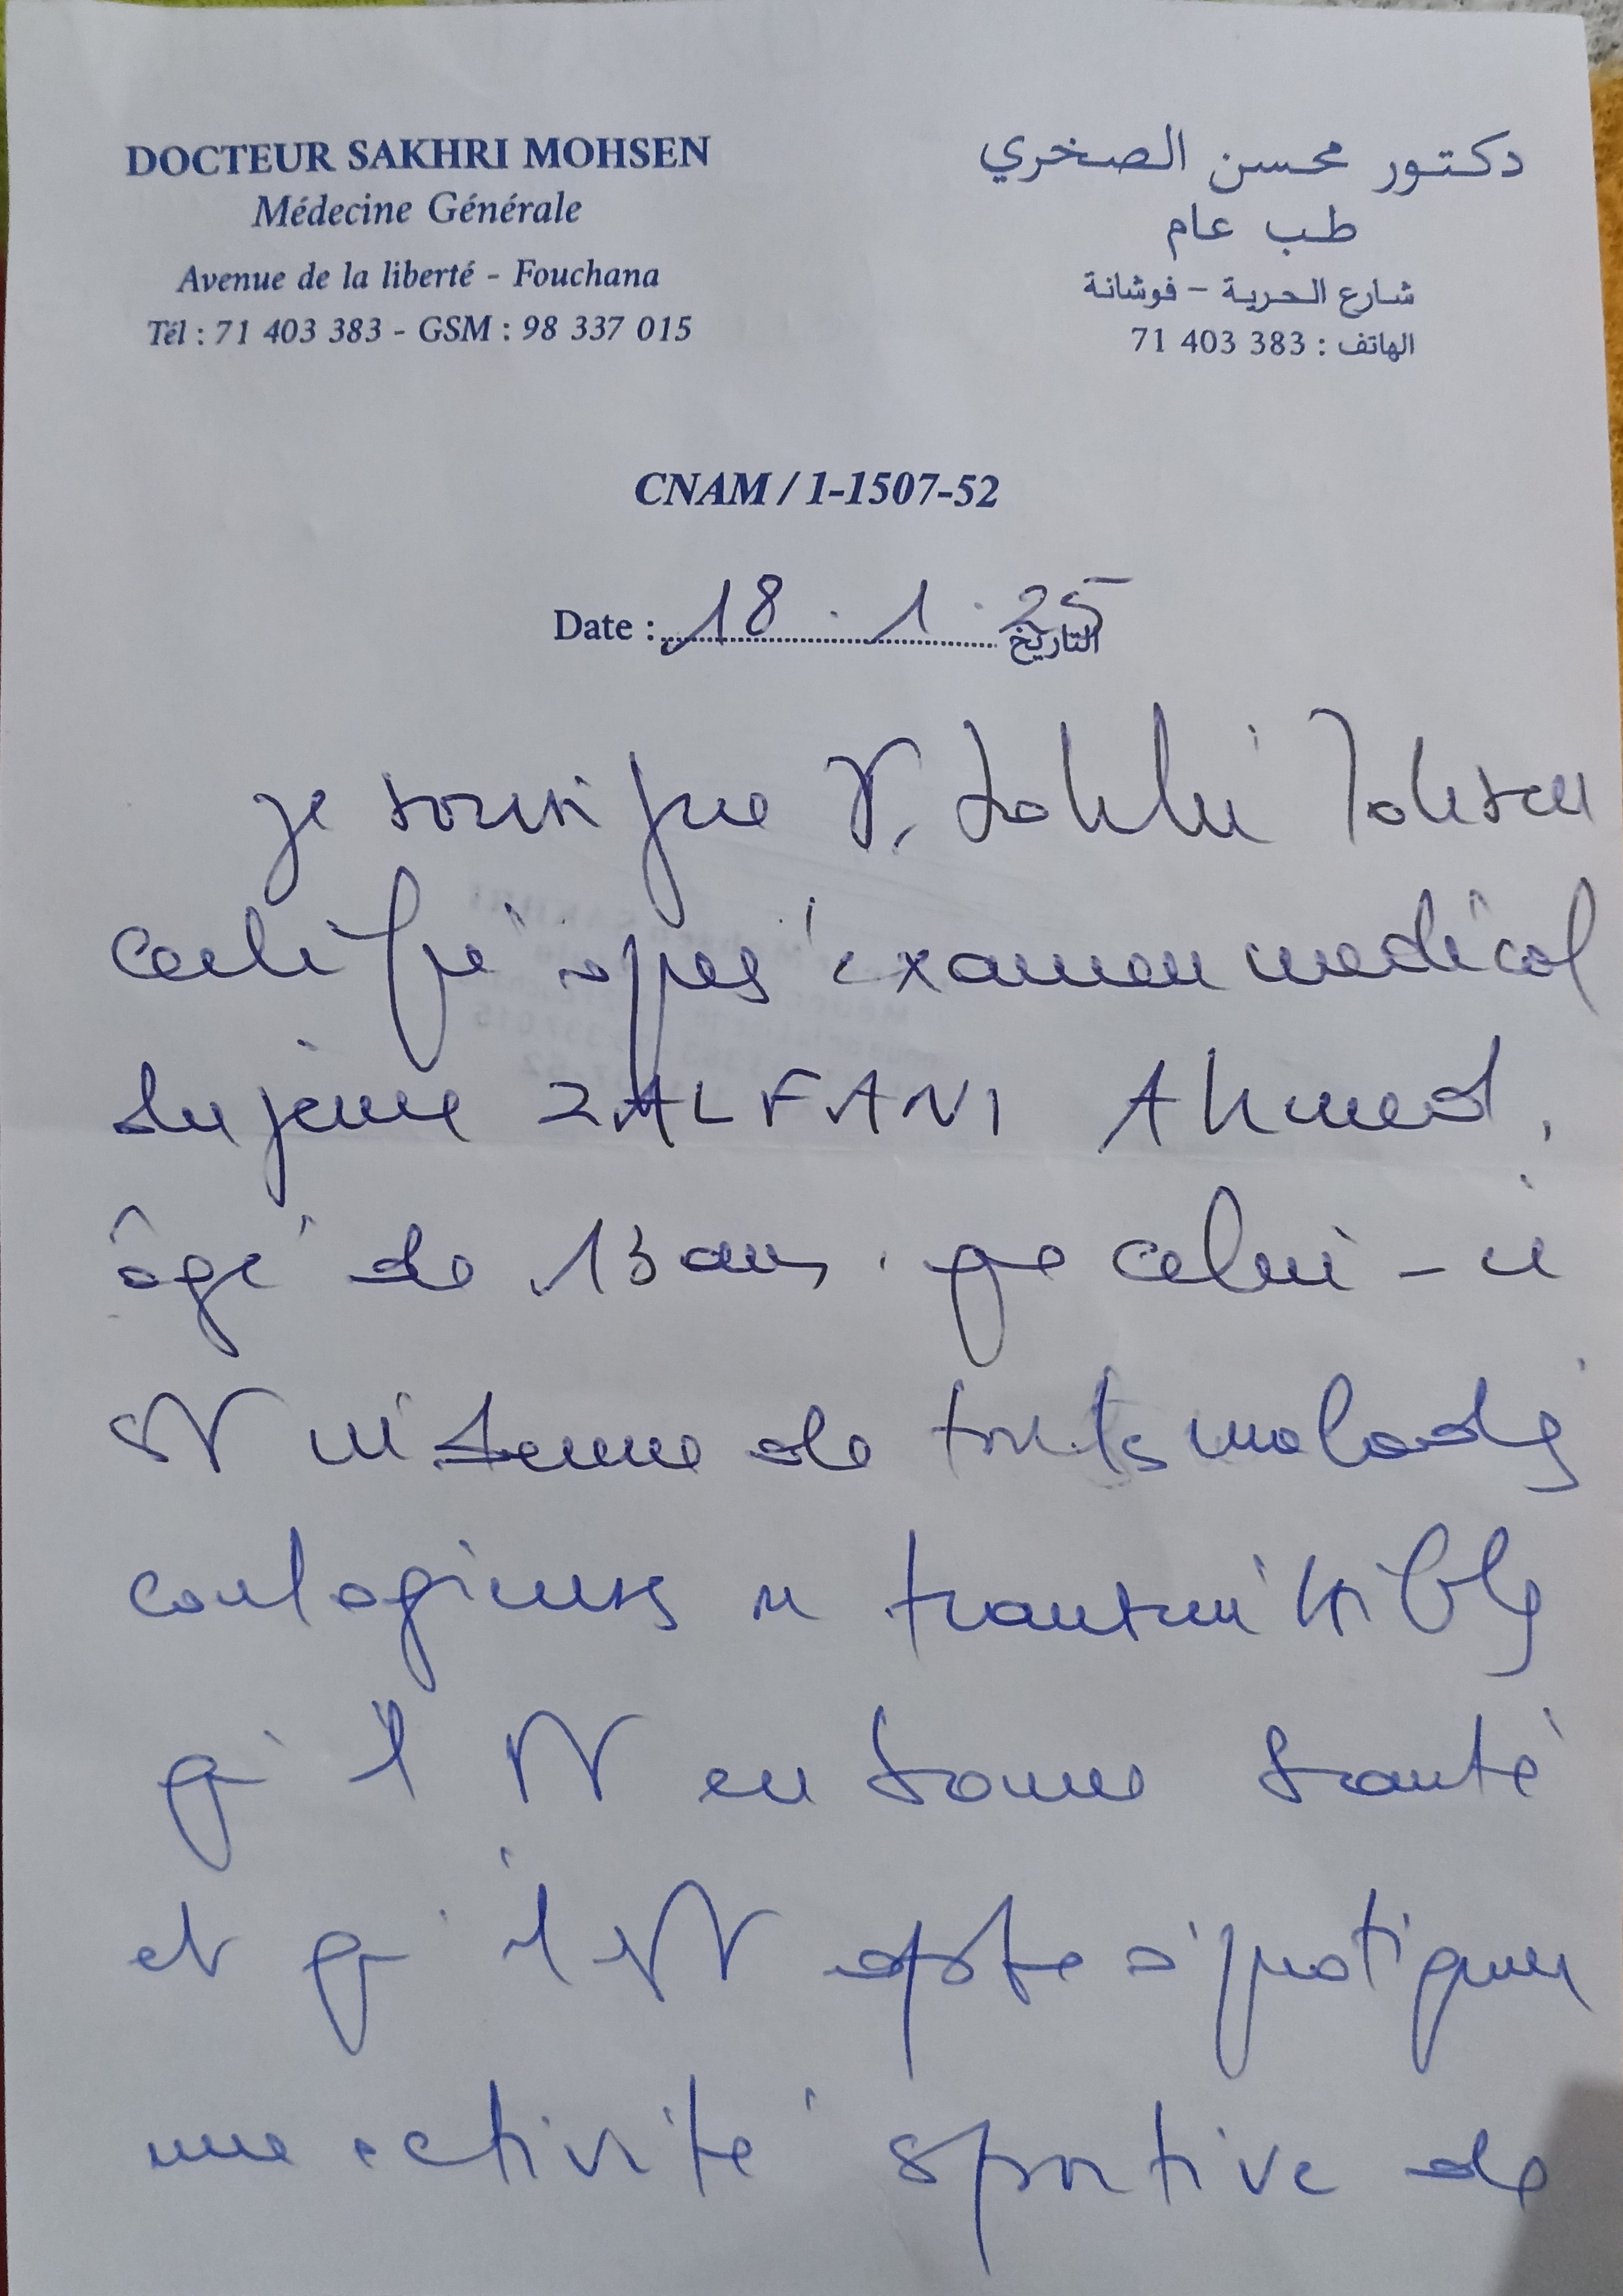 DOCTEUR SAKHRI MOHSEN
Médecine Générale
Avenue de la liberté - Fouchana
Tél : 71 403 383 - GSM : 98 337 015
دكتور محسن الصخري
طب عام
شارع الحرية - فوشانة
الهاتف : 383 403 71
CNAM / 1-1507-52
Date : 18 . 1 . 25 التاريخ
je soussigné Dr. Sakhri Mohsen
certifié après examen medical
du jeune ZALFANI Ahmed,
âgé de 13 ans. que celui-ci
est indemne de toutes maladies
contagieuses ou transmissibles
qu'il est en bonne santé
et qu'il est apte à pratiquer
une activité sportive de